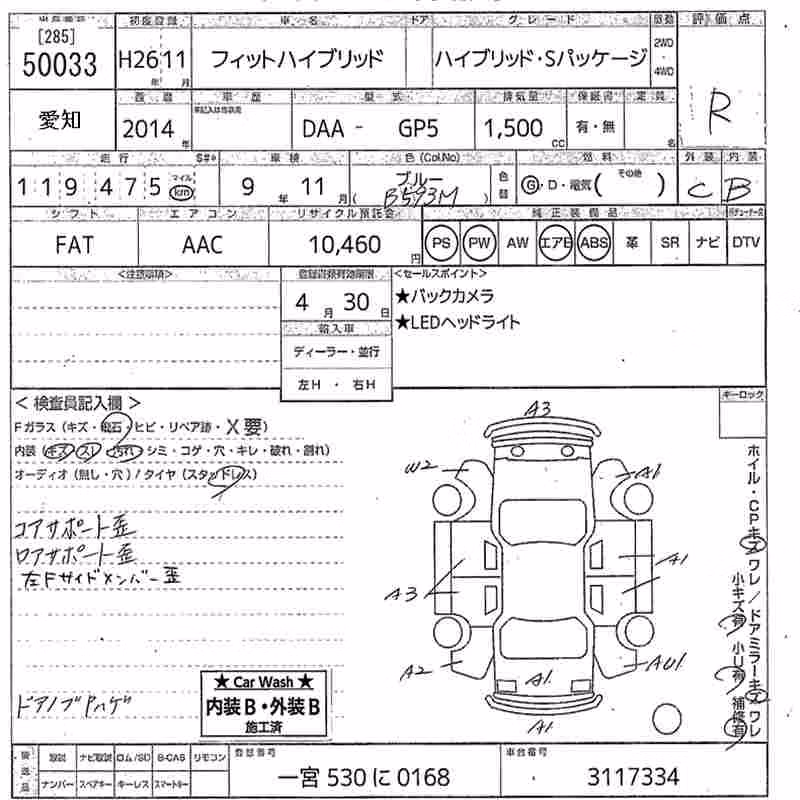 初度登録 車名 ドア グレード 駆動 評価点
[285]
50033 H26 11 フィットハイブリッド ハイブリッド・Sパッケージ 2WD ・ 4WD
年 月
西暦 車歴 型式 排気量 保証書 定員
愛知 2014 年 DAA - GP5 1,500 cc 有・無 名 R
走行 S## 車検 色(Col.No) 燃料 外装 内装
119475 マイル km 9 年 11 月 ブルー (B593M) 色替 G・D・電気( その他 ) C B
シフト エアコン リサイクル預託金 純正装備品
FAT AAC 10,460 円 PS PW AW エアB ABS 革 SR ナビ DTV
<注意事項> 登録書類有効期限 <セールスポイント>
4 月 30 日 ★バックカメラ
★LEDヘッドライト
輸入車
ディーラー・並行
左H ・ 右H
キーロック
<検査員記入欄>
Fガラス(キズ・飛石・ヒビ・リペア跡・X要)
内装(キズ・スレ・汚れ・シミ・コゲ・穴・キレ・破れ・割れ)
オーディオ(無し・穴)/タイヤ(スタッドレス)
コアサポート歪
ロアサポート歪
左Fサイドメンバー歪
ドアノブPハゲ
★ Car Wash ★
内装B・外装B
施工済
A3
W2 A1
A3 A1
A2 A1 AU1
A1
ホイル・CPキズワレ/ドアミラーキズワレ
小キズ有 小U有 補修有
取説 ナビ取説 ロム/SD B-CAS リモコン 登録番号 車台番号
ナンバー スペアキー キーレス スマートキー 一宮 530 に 0168 3117334